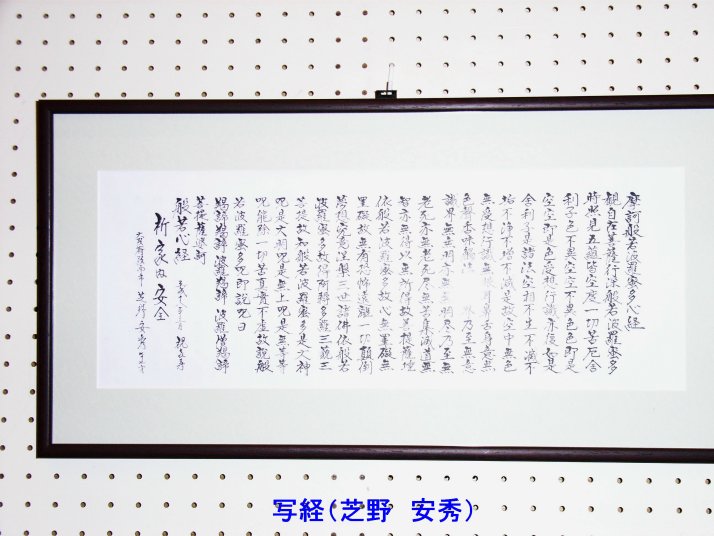 摩訶般若波羅蜜多心経
観自在菩薩行深般若波羅蜜多
時照見五蘊皆空度一切苦厄舎
利子色不異空空不異色色即是
空空即是色受想行識亦復如是
舎利子是諸法空相不生不滅不
垢不浄不増不減是故空中無色
無受想行識無眼耳鼻舌身意無
色聲香味觸法 界乃至無意
識界無無明亦無無明尽乃至無
老死亦無老死尽無苦集滅道無
智亦無得以無所得故菩提薩埵
依般若波羅蜜多故心無罣礙無
罣礙故無有恐怖遠離一切顛倒
夢想究竟涅槃三世諸佛依般若
波羅蜜多故得阿耨多羅三藐三
菩提故知般若波羅蜜多是大神
呪是大明呪是無上呪是無等等
呪能除一切苦真實不虚故説般
若波羅蜜多呪即説呪曰
羯諦羯諦 波羅羯諦 波羅僧羯諦
菩提薩婆訶
般若心経
祈家内安全
芝野安秀
写経(芝野 安秀)